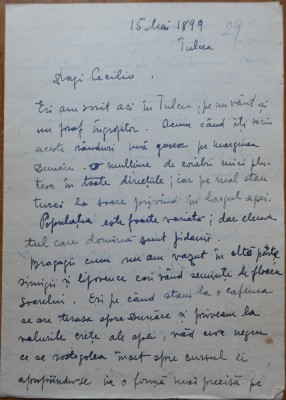 15 Mai 1899 29
Tulcea
Dragă Cecilio,
Eri am sosit aci în Tulcea, pe un vânt și
un praf îngrozitor. Acum când îți scriu
aceste rânduri mă găsesc pe marginea
Dunărei. O mulțime de corăbii mici plu-
tesc în toate direcțiile; iar pe mal stau
turci la soare privind în largul apei.
Populația este foarte variată; dar elemen-
tul care domină sunt jidanii.
Bragagii cum nu am văzut în altă parte,
simigii și lipovence cari vând semințe de floarea
soarelui. Eri pe când stam la o cafenea
ce are terasa spre Dunăre și priveam la
valurile crețe ale apei, văd ceva negru
ce se rostogolea încet spre cursul ei,
apropiindu-se ia o formă mai precisă pe